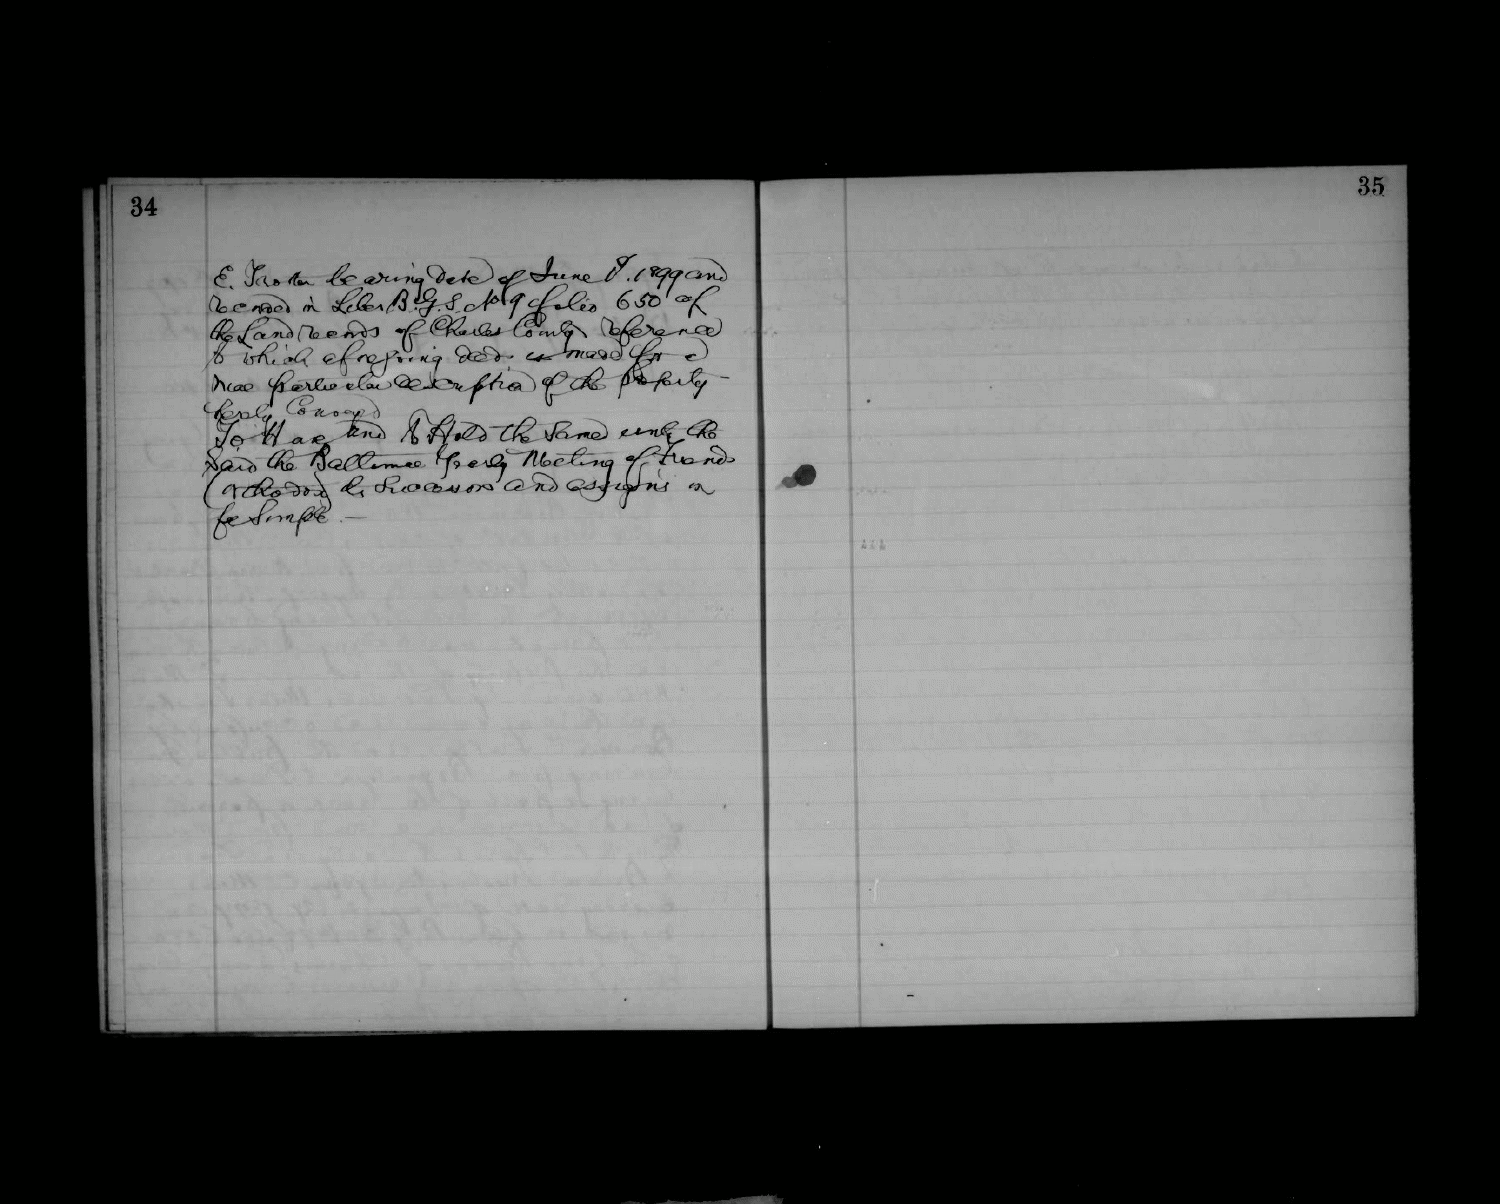 34
35
E. Trotter bearing date of June 8. 1899 and
recorded in Liber B.G.S. No 9 folio 650 of
the Land records of Charles County reference
to which aforegoing deeds is made for a
more particular description of the Property
hereby Conveyed
To Have and to Hold the same unto the
Said the Baltimore Yearly Meeting of Friends
(Orthodox) its Successors and assigns in
fee Simple. —